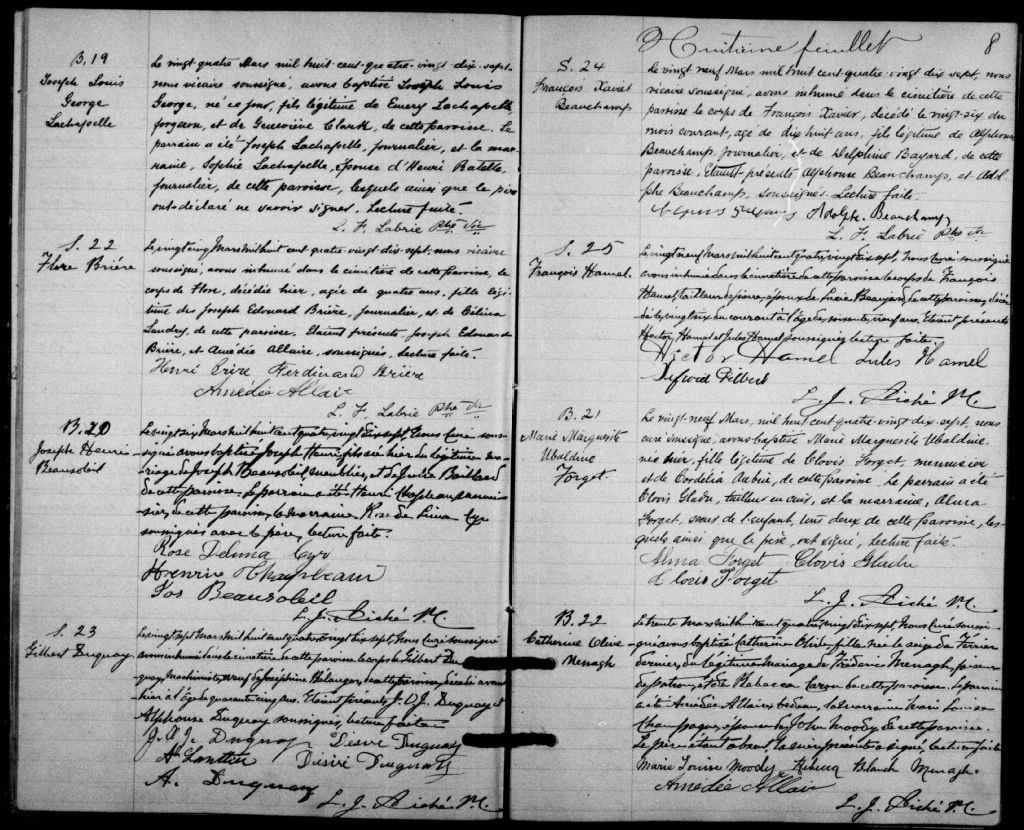 B. 19
Joseph Louis
George
Lachapelle
Le vingt quatre Mars mil huit cent-quatre-vingt-dix-sept-
nous vicaire soussigné, avons baptisé Joseph Louis
George, né ce jour, fils légitime de Emery Lachapelle
forgeron, et de Geneviève Clark, de cette paroisse. Le
parrain a été Joseph Lachapelle, journalier, et la mar-
raine, Sophie Lachapelle, épouse d'Henri Ratelle,
journalier, de cette paroisse, lesquels ainsi que le père
ont déclaré ne savoir signer. Lecture faite.
L. F. Labrie Ptre Vic
S. 22
Flore Brière
Le vingt cinq Mars mil huit cent quatre vingt dix sept, nous vicaire
soussigné, avons inhumé dans le cimetière de cette paroisse, le
corps de Flore, décédée hier, agée de quatre ans, fille légi-
time de Joseph Edouard Brière, journalier, et de
Landry, de cette paroisse. Etaient présents Joseph Edouard
Brière, et Amédée Allaire, soussignés. Lecture faite.
Henri Ferdinand Brière
Amédée Allair
L. F. Labrie Ptre Vic
B. 20
Joseph Henri
Beausoleil
Le vingt six Mars mil huit cent quatre vingt dix sept, Nous Curé sous-
signé avons baptisé Joseph Henri, fils né hier du légitime ma-
riage de Joseph Beausoleil, meublier, et de
de cette paroisse. Le parrain a été Henri menui-
sier, de cette paroisse, la marraine, Rose de Lima Cyr
soussignés avec le père, lecture faite.
Rose Delima Cyr
Jos Beausoleil
L. J. Piché P.C.
S. 23
Gilbert Duguay
Le vingt sept Mars mil huit cent quatre vingt dix sept, Nous Curé soussigné
avons inhumé dans le cimetière de cette paroisse le corps de Gilbert Du-
guay, Machiniste, veuf de Josephine Bélanger, de cette paroisse, décédé avant
hier à l'âge de quarante cinq ans. Etaient présents J. O. J. Duguay et
Alphonse Duguay soussignés, lecture faite
J. O. J. Duguay Désiré Duguay
Désiré Duguay
A. Duguay
L. J. Piché P.C.
Huitième feuillet 8
S. 24
François Xavier
Beauchamp
Le vingt neuf Mars mil huit cent quatre vingt dix sept, nous
vicaire soussigné, avons inhumé dans le cimetière de cette
paroisse le corps de François Xavier, décédé le vingt six du
mois courant, agé de dix huit ans, fils légitime de Alphonse
Beauchamp, journalier, et de Delphine Bayard, de cette
paroisse, Etaient présents Alphonse Beauchamp, et Adol-
phe Beauchamp, soussignés. Lecture faite.
Adolphe Beauchamp
L. F. Labrie Ptre Vic
S. 25
François Hamel
Le vingt neuf Mars mil huit cent quatre vingt dix sept, Nous Curé soussigné
avons inhumé dans le cimetière de cette paroisse le corps de François
Hamel, tailleur de pierre, époux de Lucie de cette paroisse, décé-
dé le vingt six du courant à l'âge de soixante neuf ans. Etaient présents
Hector Hamel et Jules Hamel soussignés lecture faite.
Hector Hamel Jules Hamel
L. J. Piché P.C.
B. 21
Marie Marguerite
Ubaldine
Forget
Le vingt-neuf Mars, mil huit cent quatre-vingt-dix-sept, nous
curé soussigné, avons baptisé Marie Marguerite Ubaldine
née hier, fille légitime de Clovis Forget, menuisier
et de Cordélia Aubin, de cette paroisse. Le parrain a été
Clovis Gladu, tailleur en cuir, et la marraine, Alma
Forget, sœur de l'enfant, tous deux de cette paroisse, les-
quels ainsi que le père, ont signé, lecture faite
Alma Forget Clovis Gladu
Clovis Forget
L. J. Piché P.C.
B. 22
Catherine Olive
Menagh
Le trente Mars mil huit cent quatre vingt dix sept, Nous Curé soussi-
gné avons baptisé Catherine Olive, fille née le seize de Février
dernier, du légitime mariage de Frédéric Menagh, faiseur
de patrons, et de Rebecca de cette paroisse. Le parrain
a été Amédée Allaire, bedeau, la marraine Marie Louise
Champagne, épouse de John Moody, de cette paroisse.
Le père étant absent, la mère présente a signé, lecture faite
Marie Louise Moody Rebecca Menagh
Amédée Allair
L. J. Piché P.C.